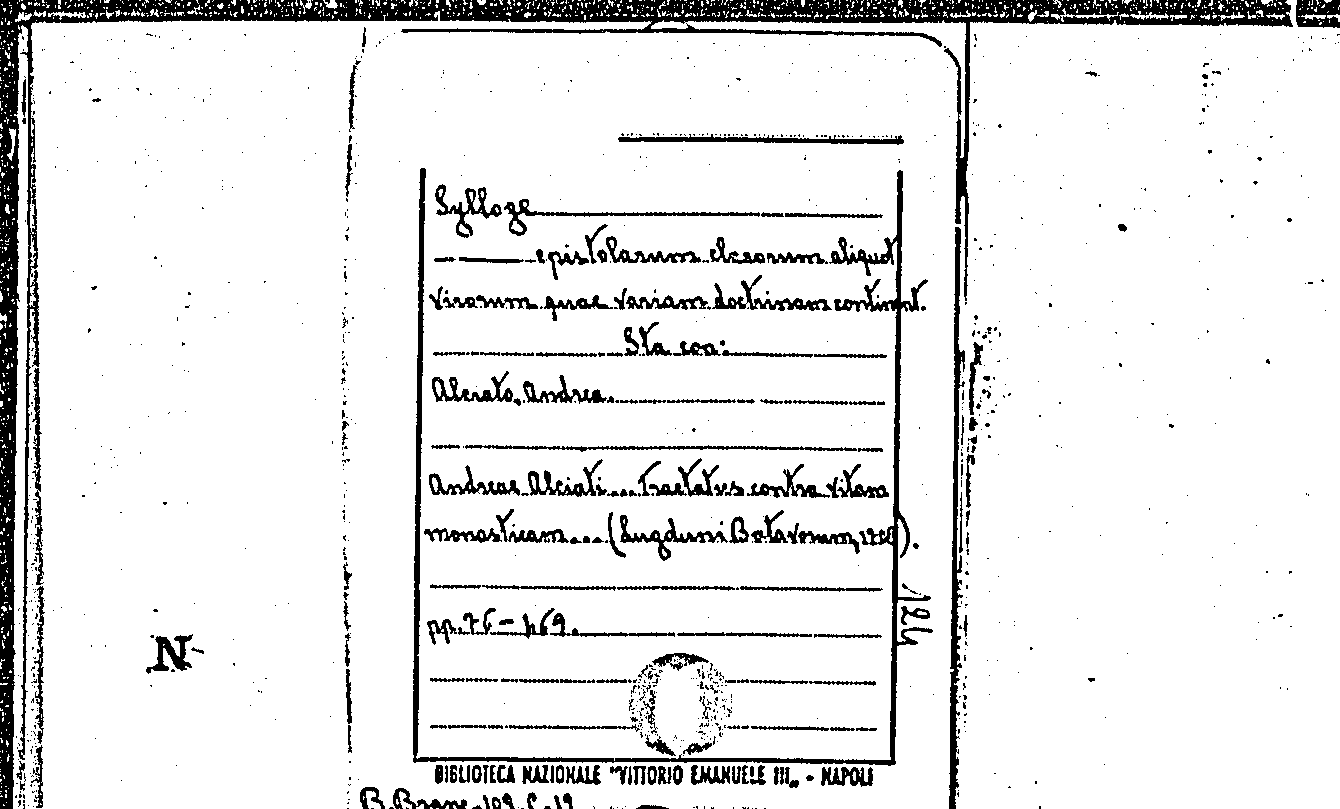 Sylloge
epistolarum clarorum aliquot
virorum quae variam doctrinam continent.
Sta con:
Alciato, Andrea.
Andreae Alciati... Tractatus contra vitam
monasticam... (Lugduni Batavorum,
pp. 76-
124
N
BIBLIOTECA NAZIONALE "VITTORIO EMANUELE III„ - NAPOLI
B. Branc. 109. C. 12